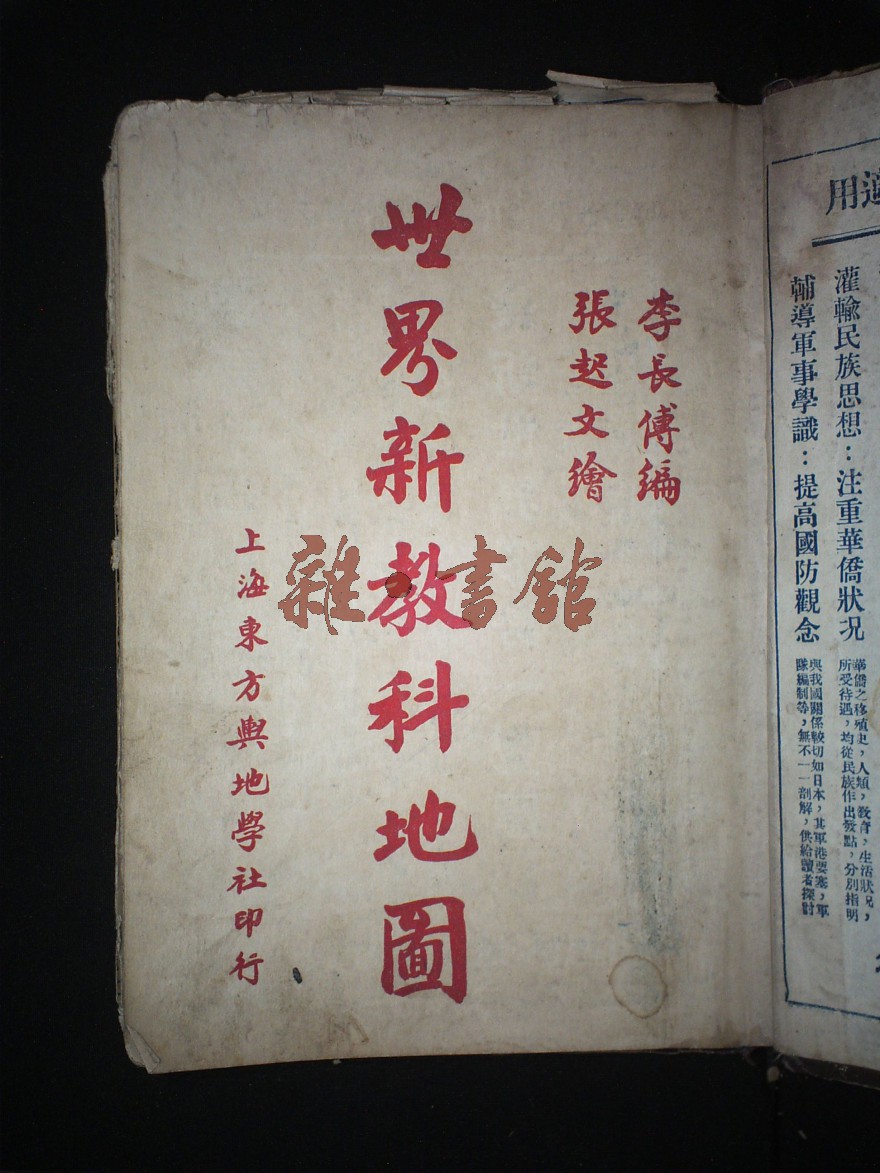 適用
灌輸民族思想：注重華僑狀况
華僑之移殖史，人類，敎育，生活狀况，
所受待遇，均從民族作出發點，分別指明
輔導軍事學識：提高國防觀念
與我國關係較切如日本，其軍港要塞，軍
隊編制等，無不一一剖解，供給讀者探討
李長傅編
張起文繪
世界新教科地圖
上海東方輿地學社印行
雜·書館